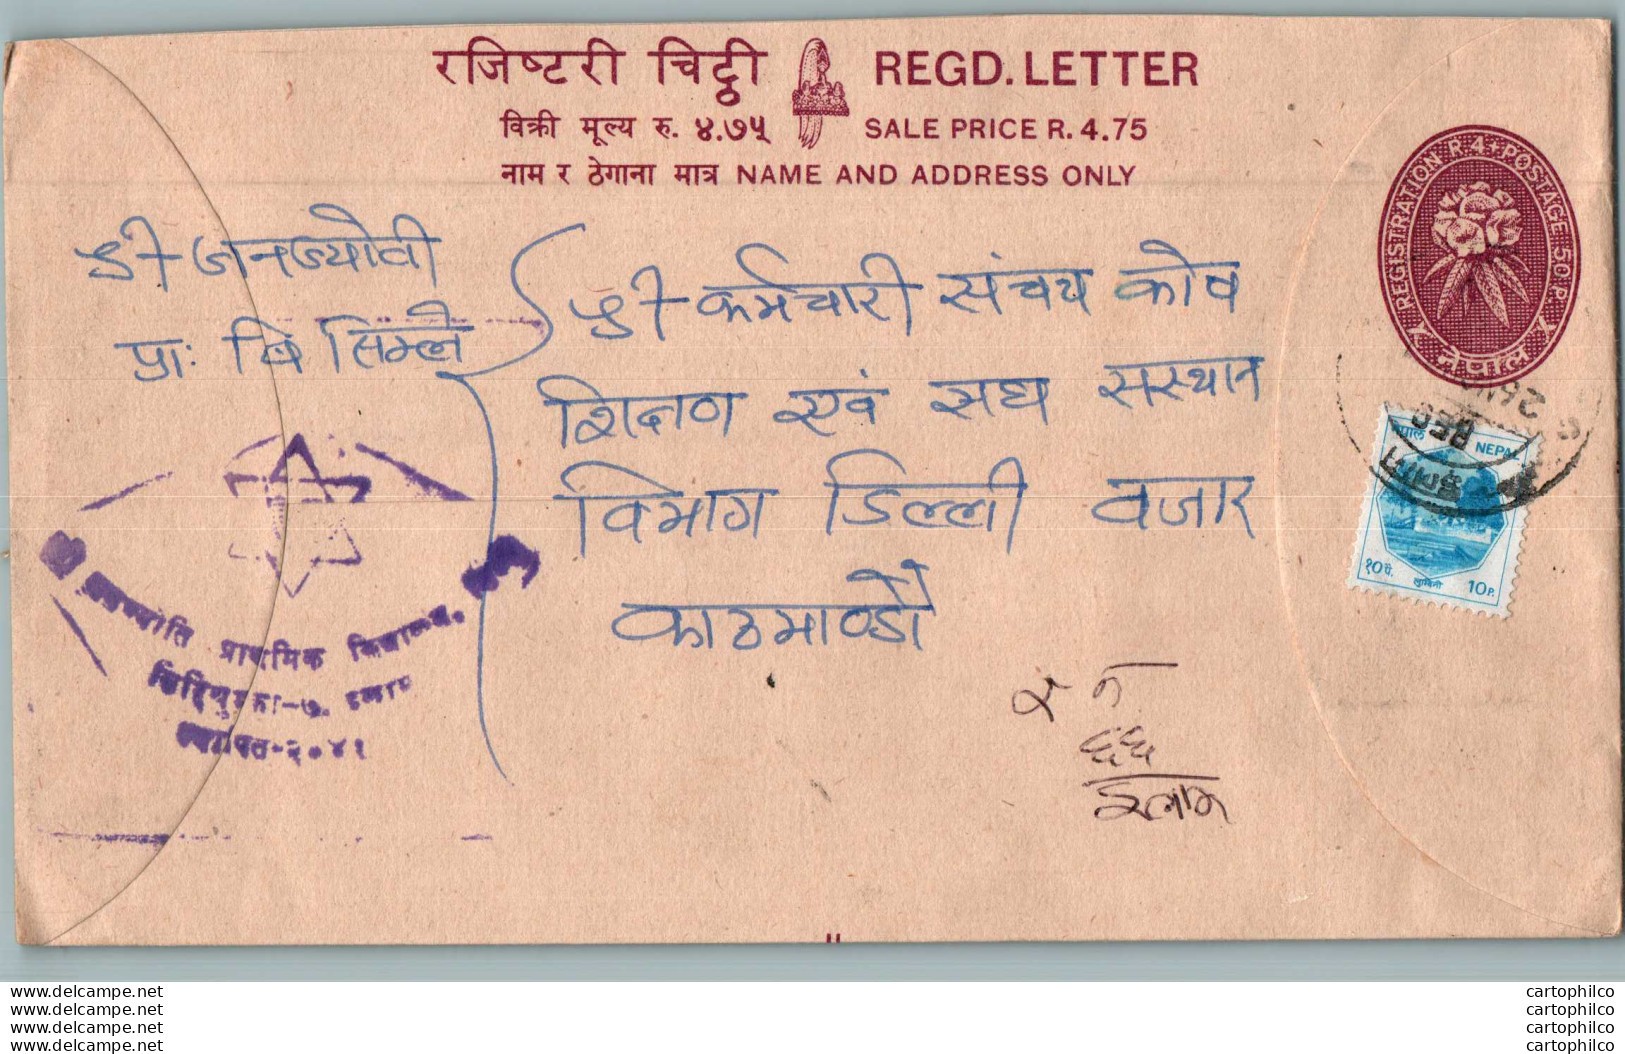 रजिष्टरी चिट्ठी REGD. LETTER
विक्री मूल्य रु. ४.७५ SALE PRICE R. 4.75
नाम र ठेगाना मात्र NAME AND ADDRESS ONLY
REGISTRATION R 4 + POSTAGE 50 P.
नेपाल
श्री जनज्योती
प्रा: वि सिम्ले
श्री कर्मचारी संचय कोष
शिक्षण एवं सघ सस्थान
विभाग डिल्ली वजार
काठमाण्डौ
NEPAL
१०पै. लुम्बिनी 10P.
प्राथमिक
स्थापित-२०४१
र न
६६
इलाम
www.delcampe.net cartophilco
www.delcampe.net cartophilco
www.delcampe.net cartophilco
www.delcampe.net cartophilco